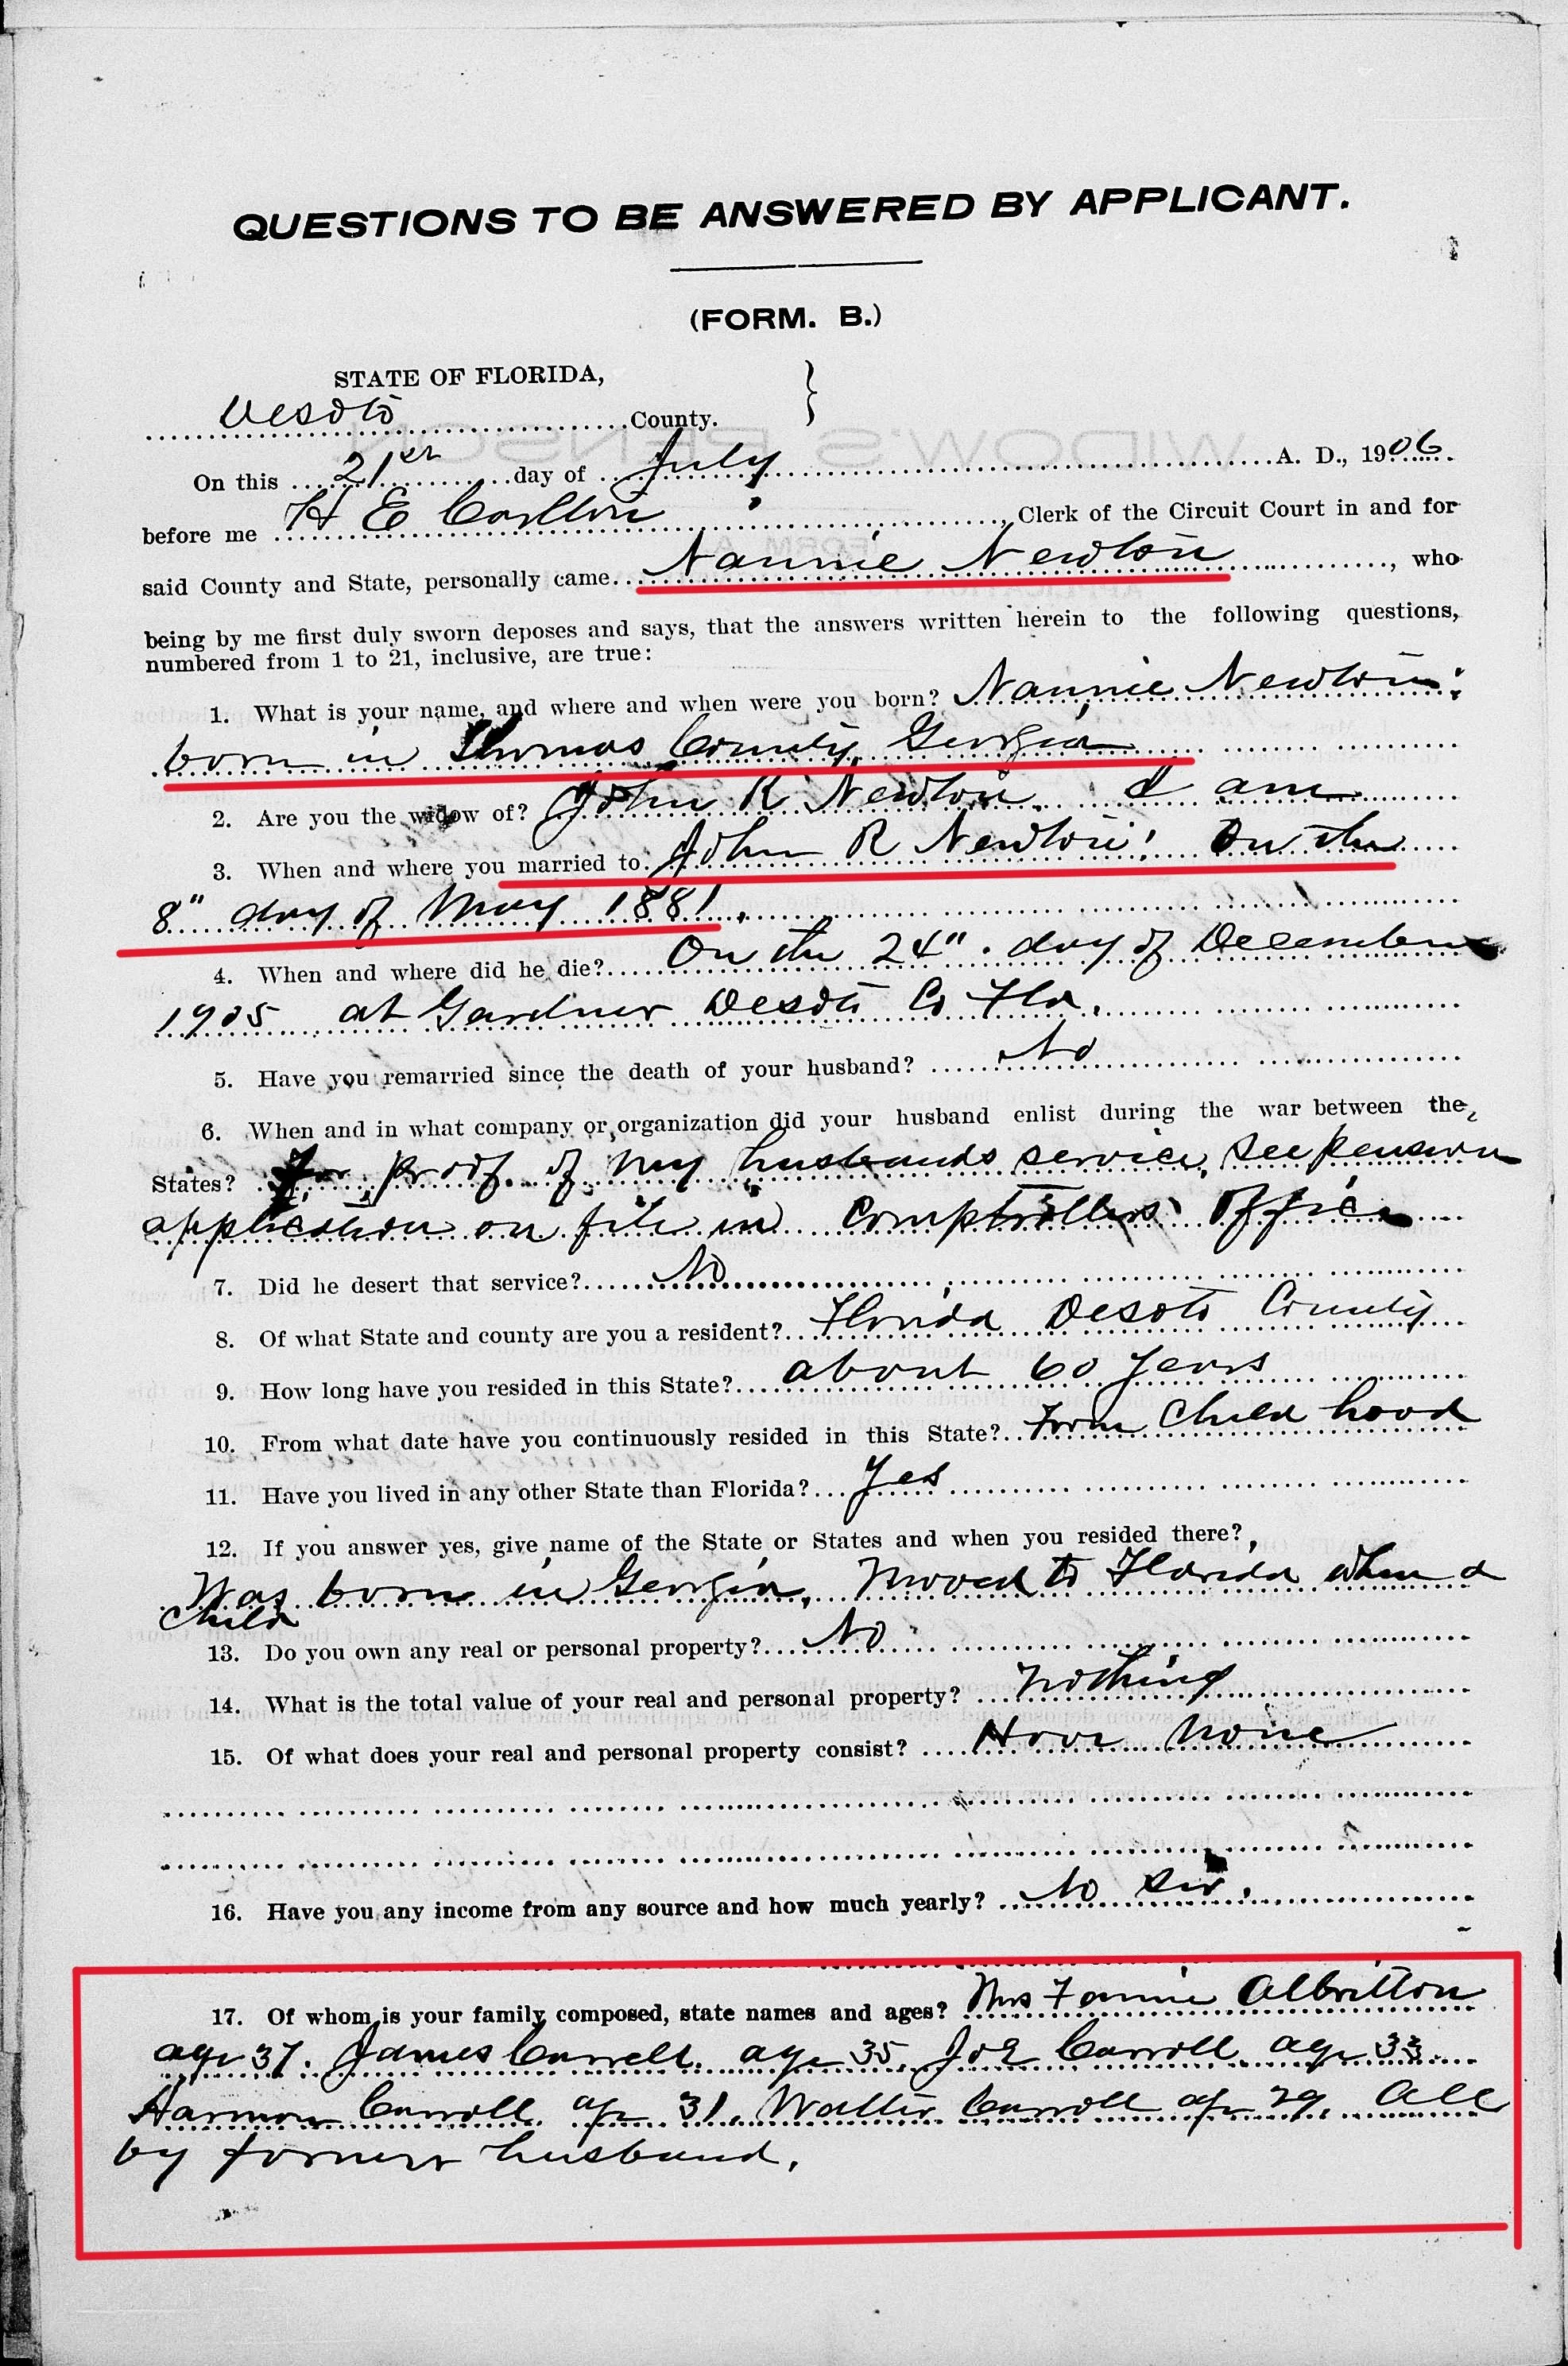 QUESTIONS TO BE ANSWERED BY APPLICANT.
(FORM. B.)
STATE OF FLORIDA,
Desoto County.
On this 21st day of July A. D., 1906
before me H E Carlton, Clerk of the Circuit Court in and for
said County and State, personally came Nannie Newton, who
being by me first duly sworn deposes and says, that the answers written herein to the following questions,
numbered from 1 to 21, inclusive, are true:
1. What is your name, and where and when were you born? Nannie Newton:
born in Thomas County, Georgia
2. Are you the widow of? John R Newton. I am
3. When and where you married to John R Newton: On the
8" day of May 1881.
4. When and where did he die? On the 24". day of December
1905 at Gardner Desoto Co Fla.
5. Have you remarried since the death of your husband? No
6. When and in what company or organization did your husband enlist during the war between the
States? For proof of my husbands service, see pension
application on file in Comptrollers Office
7. Did he desert that service? No
8. Of what State and county are you a resident? Florida Desoto County
9. How long have you resided in this State? about 60 years
10. From what date have you continuously resided in this State? From Child hood
11. Have you lived in any other State than Florida? Yes
12. If you answer yes, give name of the State or States and when you resided there?
Was born in Georgia, Moved to Florida when a
Child
13. Do you own any real or personal property? No
14. What is the total value of your real and personal property? nothing
15. Of what does your real and personal property consist? Have none
16. Have you any income from any source and how much yearly? No Sir.
17. Of whom is your family composed, state names and ages? Mrs Fannie Albritton
age 37. James Carroll. age 35. Joe Carroll age 33.
Harmon Carroll. age 31. Walter Carroll age 29. All
by former husband.